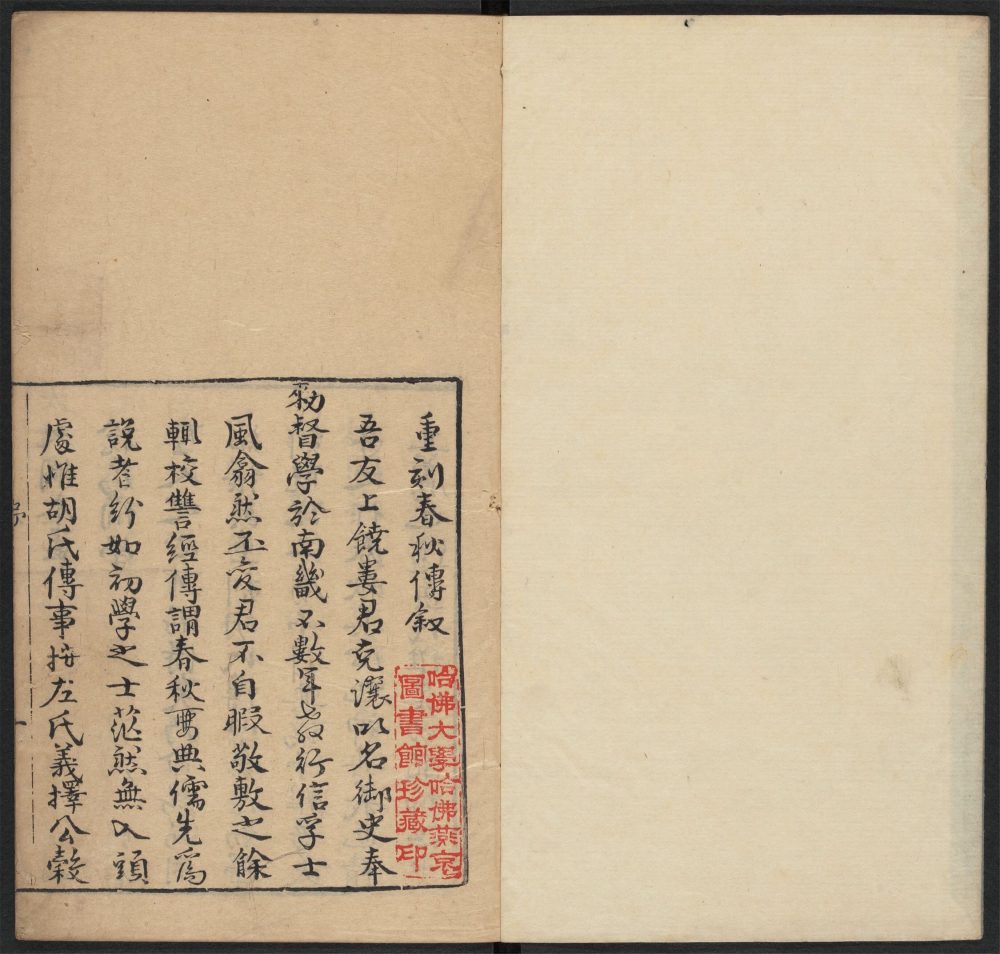 重刻春秋傳叙
吾友上饒婁君克讓以名御史奉
勑督學於南畿不數年教行信孚士
風翕然丕变君不自暇敬敷之餘
輒校讐經傳謂春秋要典儒先爲
說者紛如初學之士茫然無入頭
處惟胡氏傳事按左氏義擇公穀
序
一
哈佛大學哈佛燕京
圖書館珍藏印